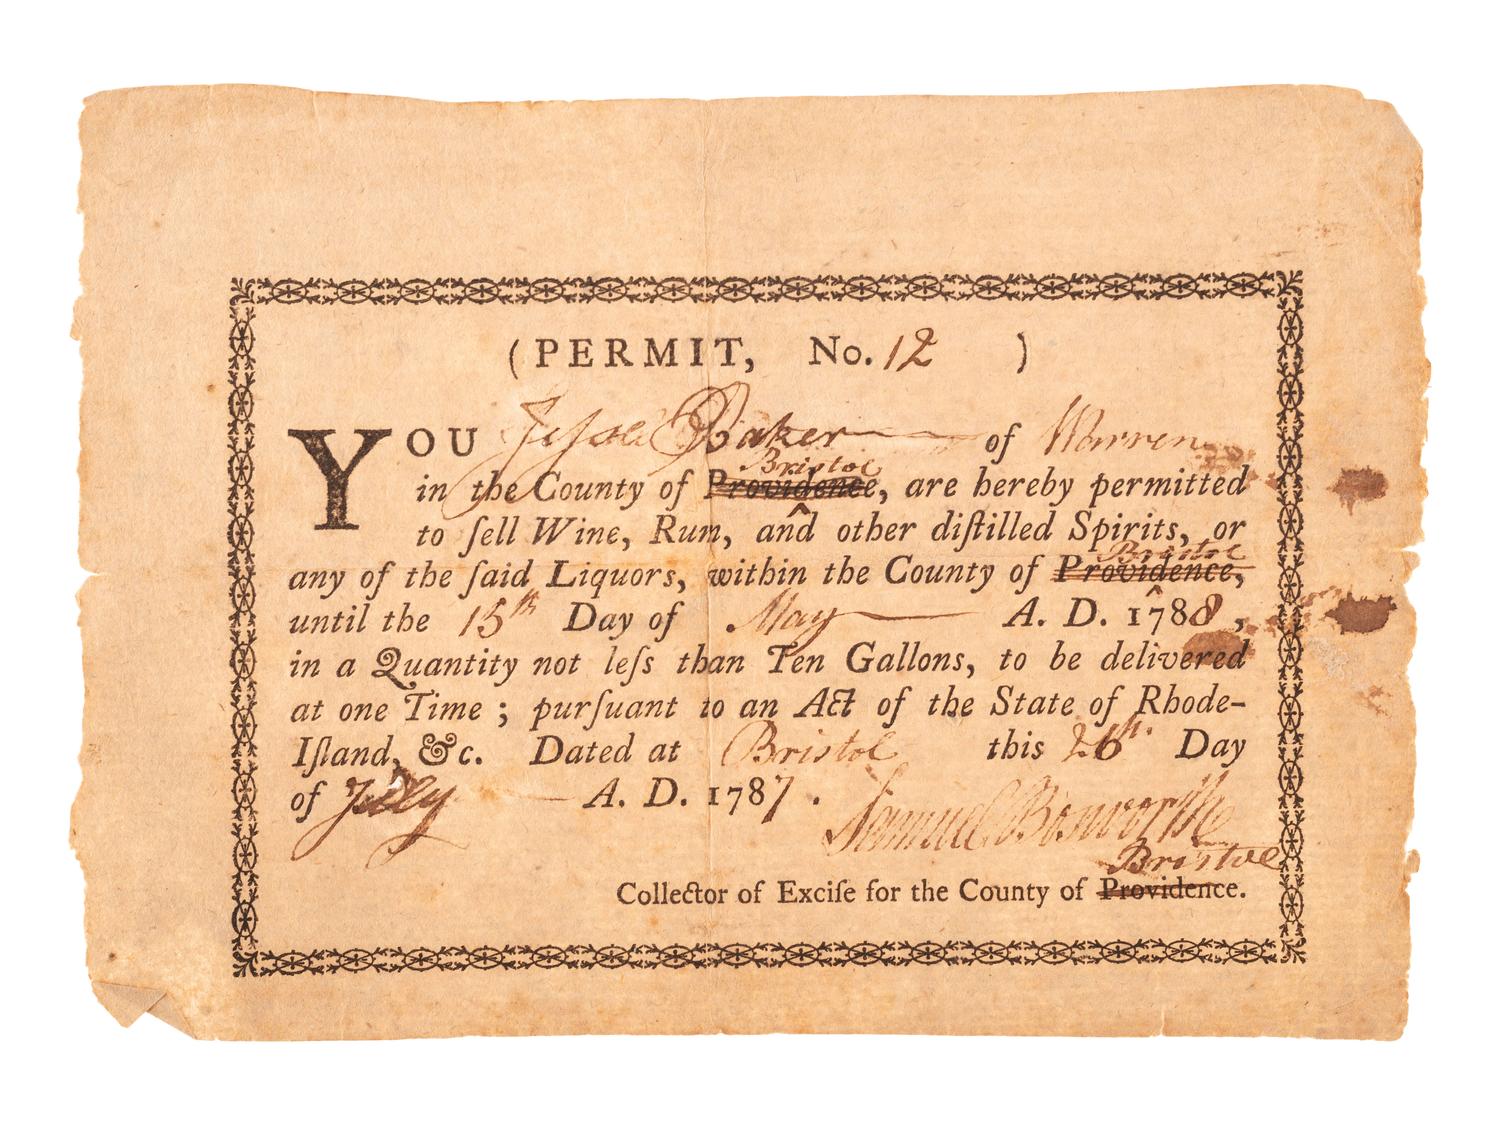 (PERMIT, No. 12 )
YOU Jesse Baker of Warren
Bristol
in the County of Providence, are hereby permitted
to ſell Wine, Rum, and other diſtilled Spirits, or
Bristol
any of the ſaid Liquors, within the County of Providence,
until the 15th Day of May A. D. 1788,
in a Quantity not leſs than Ten Gallons, to be delivered
at one Time ; purſuant to an Act of the State of Rhode-
Iſland, &c. Dated at Bristol this 26th. Day
of July A. D. 1787.
Samuel Bosworth
Bristol
Collector of Exciſe for the County of Providence.